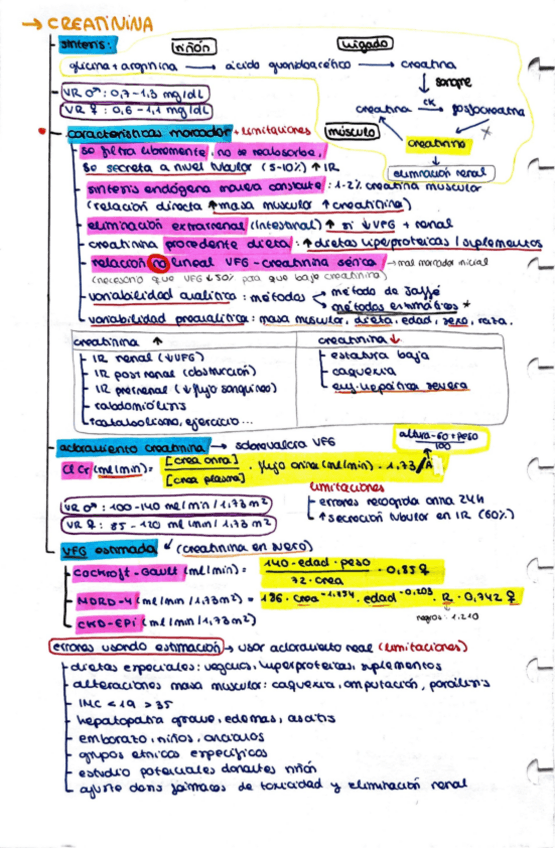 → CREATININA
síntesis: riñón hígado
glicina + arginina → ácido guanidoacético → creatina
↓ sangre
creatina CK → fosfocreatina
VR ♂: 0,7-1,3 mg/dL
VR ♀: 0,6-1,1 mg/dL
músculo
creatinina
↓
eliminación renal
características marcador + limitaciones
se filtra libremente, no se reabsorbe,
se secreta a nivel tubular (5-10%) ↑ IR
síntesis endógena masa constante: 1-2% creatina muscular
(relación directa ↑ masa muscular ↑ creatinina)
eliminación extrarrenal (intestinal) ↑ si ↓ VFG + renal
creatinina procedente dieta: ↑ dietas hiperproteicas / suplementos
relación no lineal VFG - creatinina sérica → mal marcador inicial
(necesario que VFG ↓ 50% para que baje creatinina)
variabilidad analítica: métodos método de Jaffé
métodos enzimáticos *
variabilidad preanalítica: masa muscular, dieta, edad, sexo, raza.
creatinina ↑ creatinina ↓
IR renal (↓VFG) estatura baja
IR post renal (obstrucción) caquexia
IR prerrenal (↓ flujo sanguíneo) enf. hepática severa
rabdomiólisis
catabolismo, ejercicio...
aclaramiento creatinina → sobrevalora VFG
altura - 60 + peso / 100
Cl Cr (ml/min) = [crea orina] / [crea plasma] · flujo orina (ml/min) · 1,73/A
limitaciones
VR ♂: 100-140 ml/min/1,73 m²
errores recogida orina 24h
VR ♀: 85-120 ml/min/1,73 m²
↑ secreción tubular en IR (60%)
VFG estimada (creatinina en suero)
Cockroft-Gault (ml/min) = 140 - edad · peso / 72 · crea · 0,85 ♀
MDRD-4 (ml/min/1,73m²) = 186 · crea -1.154 · edad -0.203 · R · 0,742 ♀
negros: 1.210
CKD-EPI (ml/min/1,73m²)
errores usando estimación → usar aclaramiento real (limitaciones)
dietas especiales: veganos, hiperproteicas, suplementos
alteraciones masa muscular: caquexia, amputación, parálisis
IMC < 19 > 35
hepatopatía grave, edemas, ascitis
embarazo, niños, ancianos
grupos étnicos específicos
estudio potenciales donantes riñón
ajuste dosis fármacos de toxicidad y eliminación renal